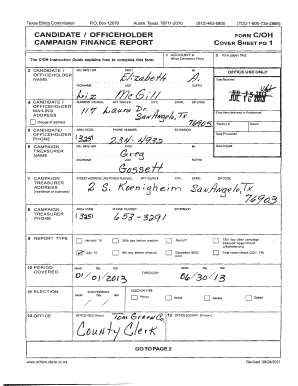 Texas Ethics Commission P.O. Box 12070 Austin, Texas 78711-2070 (512)463-5800 (TDD 1-800-735-2989)
CANDIDATE / OFFICEHOLDER FORM C/OH
CAMPAIGN FINANCE REPORT COVER SHEET PG 1
The C/OH Instruction Guide explains how to complete this form.
1 ACCOUNT #
(Ethics Commission Filers)
2 Total pages filed:
3 CANDIDATE / OFFICEHOLDER NAME
MS / MRS / MR FIRST MI
Elizabeth A.
NICKNAME LAST SUFFIX
Liz McGill
OFFICE USE ONLY
Date Received
4 CANDIDATE / OFFICEHOLDER MAILING ADDRESS
change of address
ADDRESS / PO BOX; APT / SUITE #; CITY; STATE; ZIP CODE
117 Laura Dr. San Angelo, Tx
76905
Date Hand-delivered or Postmarked
Receipt # Amount
5 CANDIDATE / OFFICEHOLDER PHONE
AREA CODE PHONE NUMBER EXTENSION
(325) 234-4932
Date Processed
6 CAMPAIGN TREASURER NAME
MS / MRS / MR FIRST MI
Greg
Date Imaged
NICKNAME LAST SUFFIX
Gossett
7 CAMPAIGN TREASURER ADDRESS
(residence or business)
STREET ADDRESS (NO PO BOX PLEASE); APT / SUITE #; CITY; STATE; ZIP CODE
2 S. Koenigheim San Angelo, Tx
76903
8 CAMPAIGN TREASURER PHONE
AREA CODE PHONE NUMBER EXTENSION
(325) 653-3291
9 REPORT TYPE
January 15 30th day before election Runoff 15th day after campaign treasurer appointment (officeholder only)
July 15 8th day before election Exceeded $500 limit Final report (Attach C/OH - FR)
10 PERIOD COVERED
Month Day Year THROUGH Month Day Year
01/01/2013 06/30/13
11 ELECTION
ELECTION DATE
Month Day Year
ELECTION TYPE
Primary Runoff General Special
12 OFFICE
OFFICE HELD (if any) Tom Green Co.
County Clerk
13 OFFICE SOUGHT (if known)
GO TO PAGE 2
www.ethics.state.tx.us Revised 09/28/2011